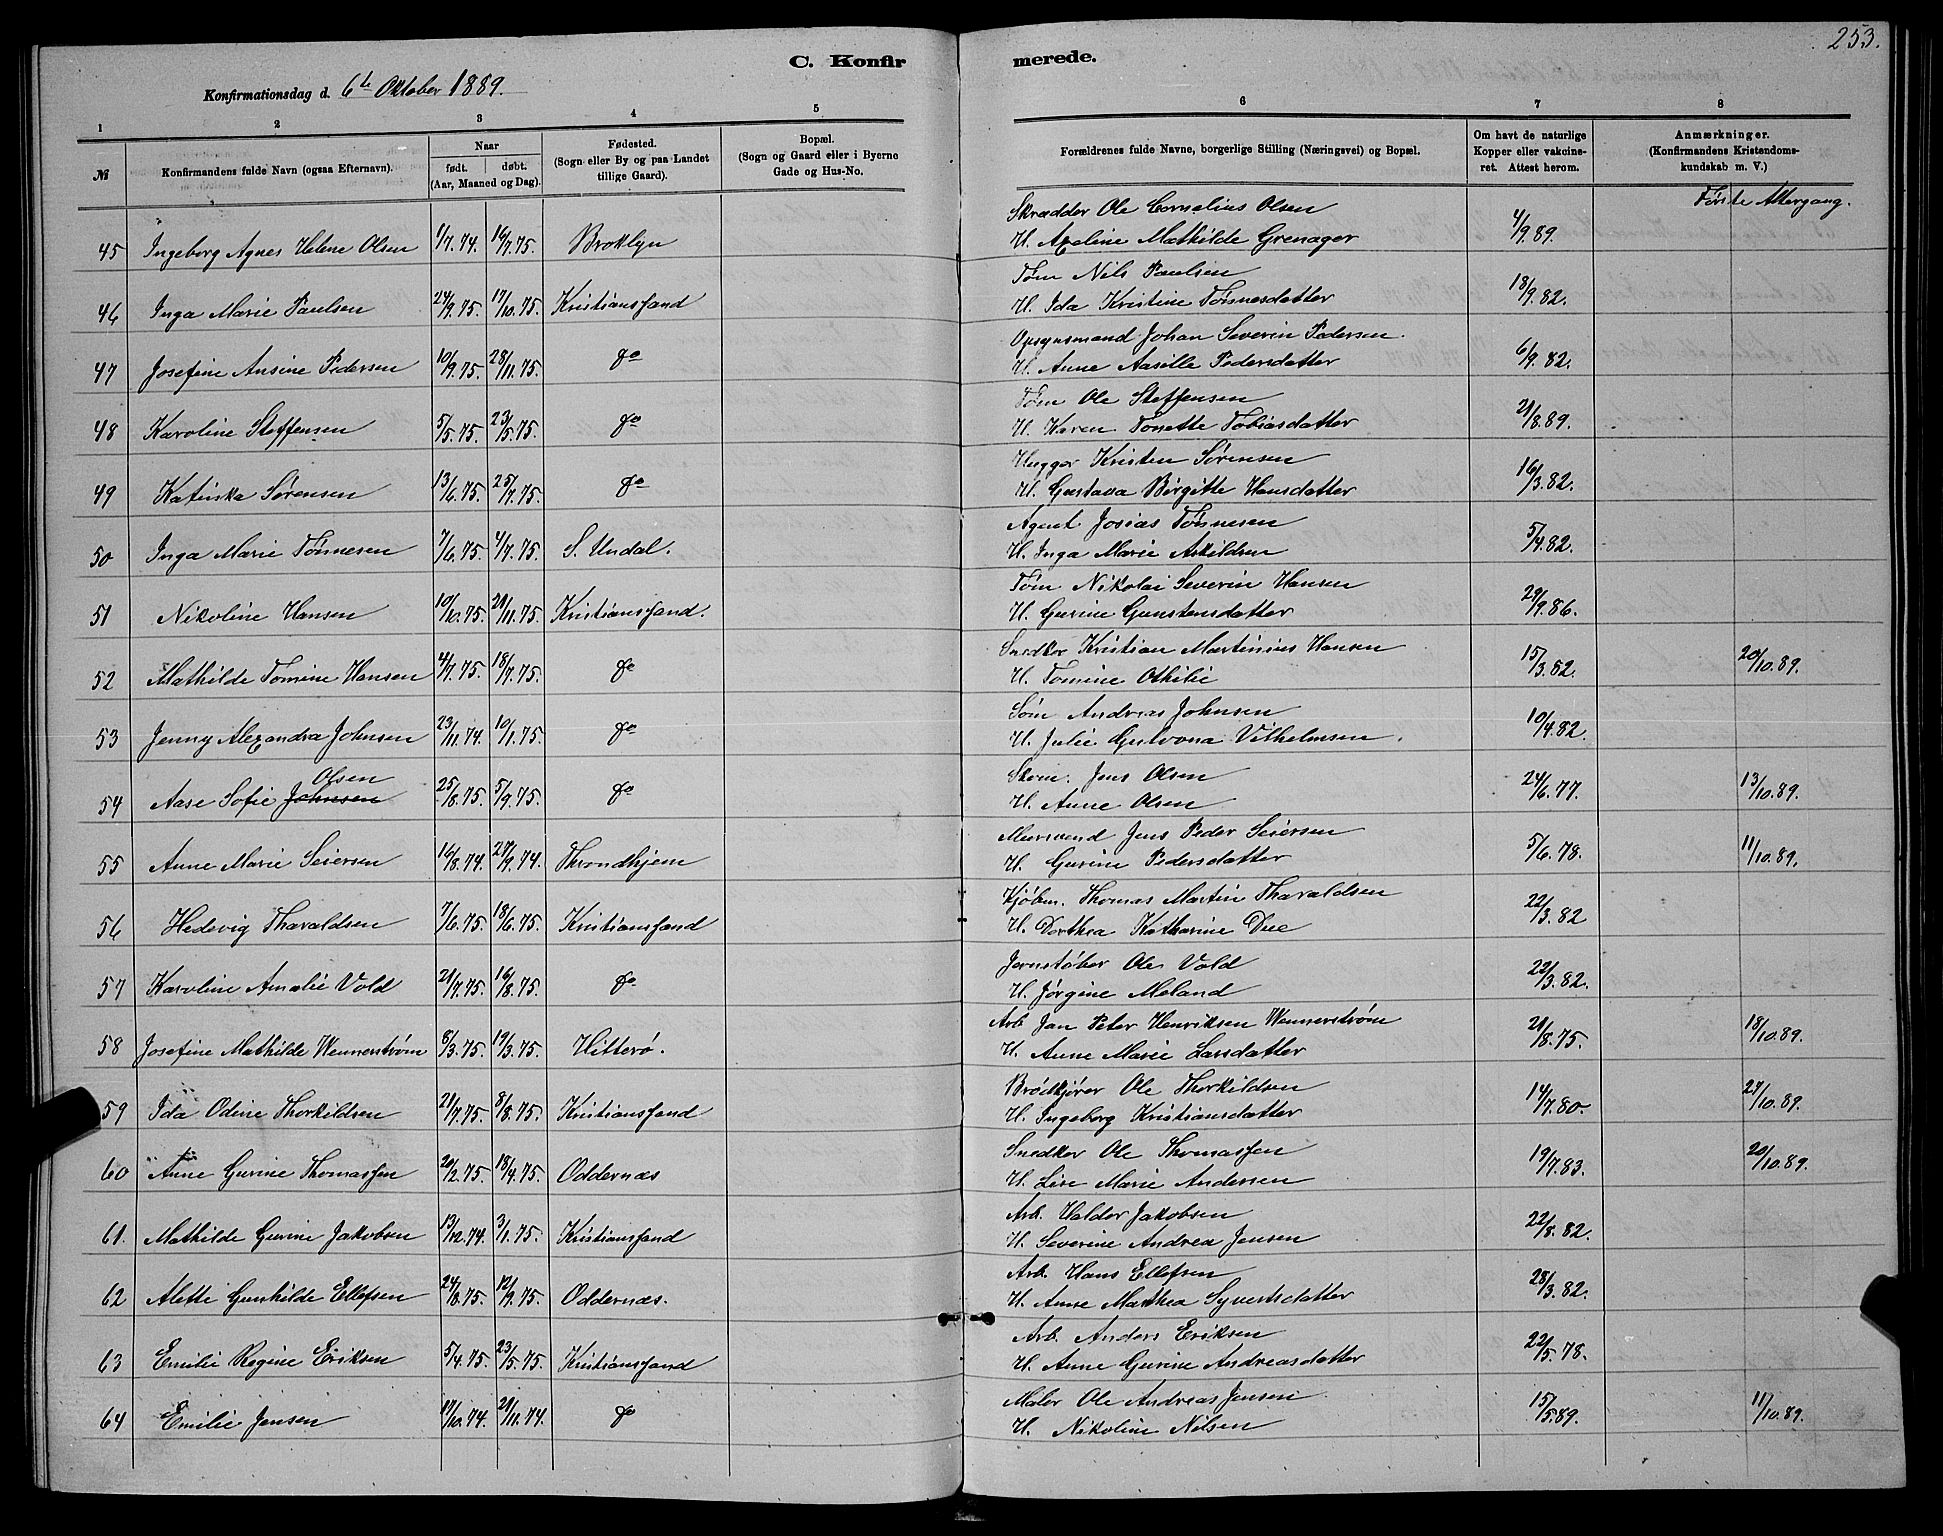 253.
C. Konfir merede.
Konfirmationsdag d. 6te Oktober 1889.
1 2 3 4 5 6 7 8
№
Konfirmandens fulde Navn (ogsaa Efternavn).
Naar
født. døbt.
(Aar, Maaned og Dag).
Fødested.
(Sogn eller By og paa Landet
tillige Gaard).
Bopæl.
(Sogn og Gaard eller i Byerne
Gade og Hus-No.
Forældrenes fulde Navne, borgerlige Stilling (Næringsvei) og Bopæl.
Om havt de naturlige
Kopper eller vakcine-
ret. Attest herom.
Anmærkninger.
(Konfirmandens Kristendoms-
kundskab m. V.)
Første Altergang.
Skrædder Ole Cornelius Olsen
45 Ingeborg Agnes Helene Olsen 1/7.74. 16/7.75. Broklyn H. Axeline Mathilde Grenager 4/9.89.
Tøm Nils Paulsen
46 Inga Marie Paulsen 24/9.75. 17/10.75. Kristianssand H. Ida Kristine Tønnesdatter 18/9.82.
Opsynsmand Johan Severin Pedersen.
47 Josefine Ansine Pedersen 10/9.75. 28/11.75. do H. Anne Aasille Pedersdatter 6/9.82.
Tøm Ole Steffensen
48 Karoline Steffensen 5/5.75. 23/5.75. do H. Karen Tonette Tobiasdatter 21/8.89.
Hugger Kristen Sørensen
49 Katinka Sørensen 13/6.75. 25/7.75. do H. Gustava Birgitte Hansdatter 16/3.82.
Agent Josias Tønnesen
50 Inga Marie Tønnesen 7/6.75 4/7.75. S. Undal. H. Inga Marie Askildsen 5/4.82.
Tøm Nikolai Severin Hansen
51 Nikoline Hansen 10/10.75. 21/11.75. Kristianssand. H. Gurine Gunstensdatter 29/9.86.
Snedker Kristian Martinius Hansen
52 Mathilde Tomine Hansen 4/7.75. 18/7.75. do H. Tomine Othilie 15/3.82. 20/10.89.
Søm Andreas Johnsen
53 Jenny Alexandra Johnsen 23/11.74. 10/1.75. do H. Julie Gulvona Vilhelmsen. 10/4.82.
Olsen
Skom. Jens Olsen
54 Aase Sofie Johnsen 25/8.75. 5/9.75. do H. Anne Olsen 24/6.77. 13/10.89.
Mursvend Jens Peder Seiersen
55 Anne Marie Seiersen 16/8.74. 27/9.74. Throndhjem H. Gurine Pedersdatter 5/6.78. 11/10.89.
Kjøbm. Thomas Martin Tharaldsen
56 Hedevig Tharaldsen 7/6.75. 18/6.75. Kristianssand H. Dorthea Katharine Due 22/3.82
Jernstøber Ole Vold
57 Karoline Amalie Vold 21/7.75. 16/8.75. do H. Jørgine Meland 22/3.82.
Arb Jan Peter Henriksen Wennerstrøm
58 Josefine Mathilde Wennerstrøm 8/3.75. 19/3.75. Hitterø. H. Anne Marie Larsdatter 21/8.75. 18/10.89.
Brødkjører Ole Thorkildsen
59 Ida Odine Thorkildsen 21/7.75 8/8.75. Kristianssand H. Ingeborg Kristiansdatter 14/7.80. 27/10.89.
Snedker Ole Thomassen
60 Anne Gurine Thomassen 20/2.75. 18/4.75. Oddernæs H. Lise Marie Andersen 19/7.83. 20/10.89.
Arb. Halder Jakobsen
61. Mathilde Gurine Jakobsen 13/12.74. 3/1.75. Kristianssand H. Severine Andrea Jensen 22/8.82.
Arb. Hans Ellefsen
62 Alette Gunhilde Ellefsen 24/8.75. 12/9.75. Oddernæs. H. Anne Marthea Syvertsdatter 28/3.82.
Arb. Anders Eriksen
63 Emilie Regine Eriksen 5/4.75. 23/5.75. Kristianssand H. Anne Gurine Andreasdatter 22/5.78.
Maler Ole Andreas Jensen
64 Emilie Jensen 17/10.74. 21/11.74. do H. Nikoline Nilsen 15/5.89. 11/10.89.